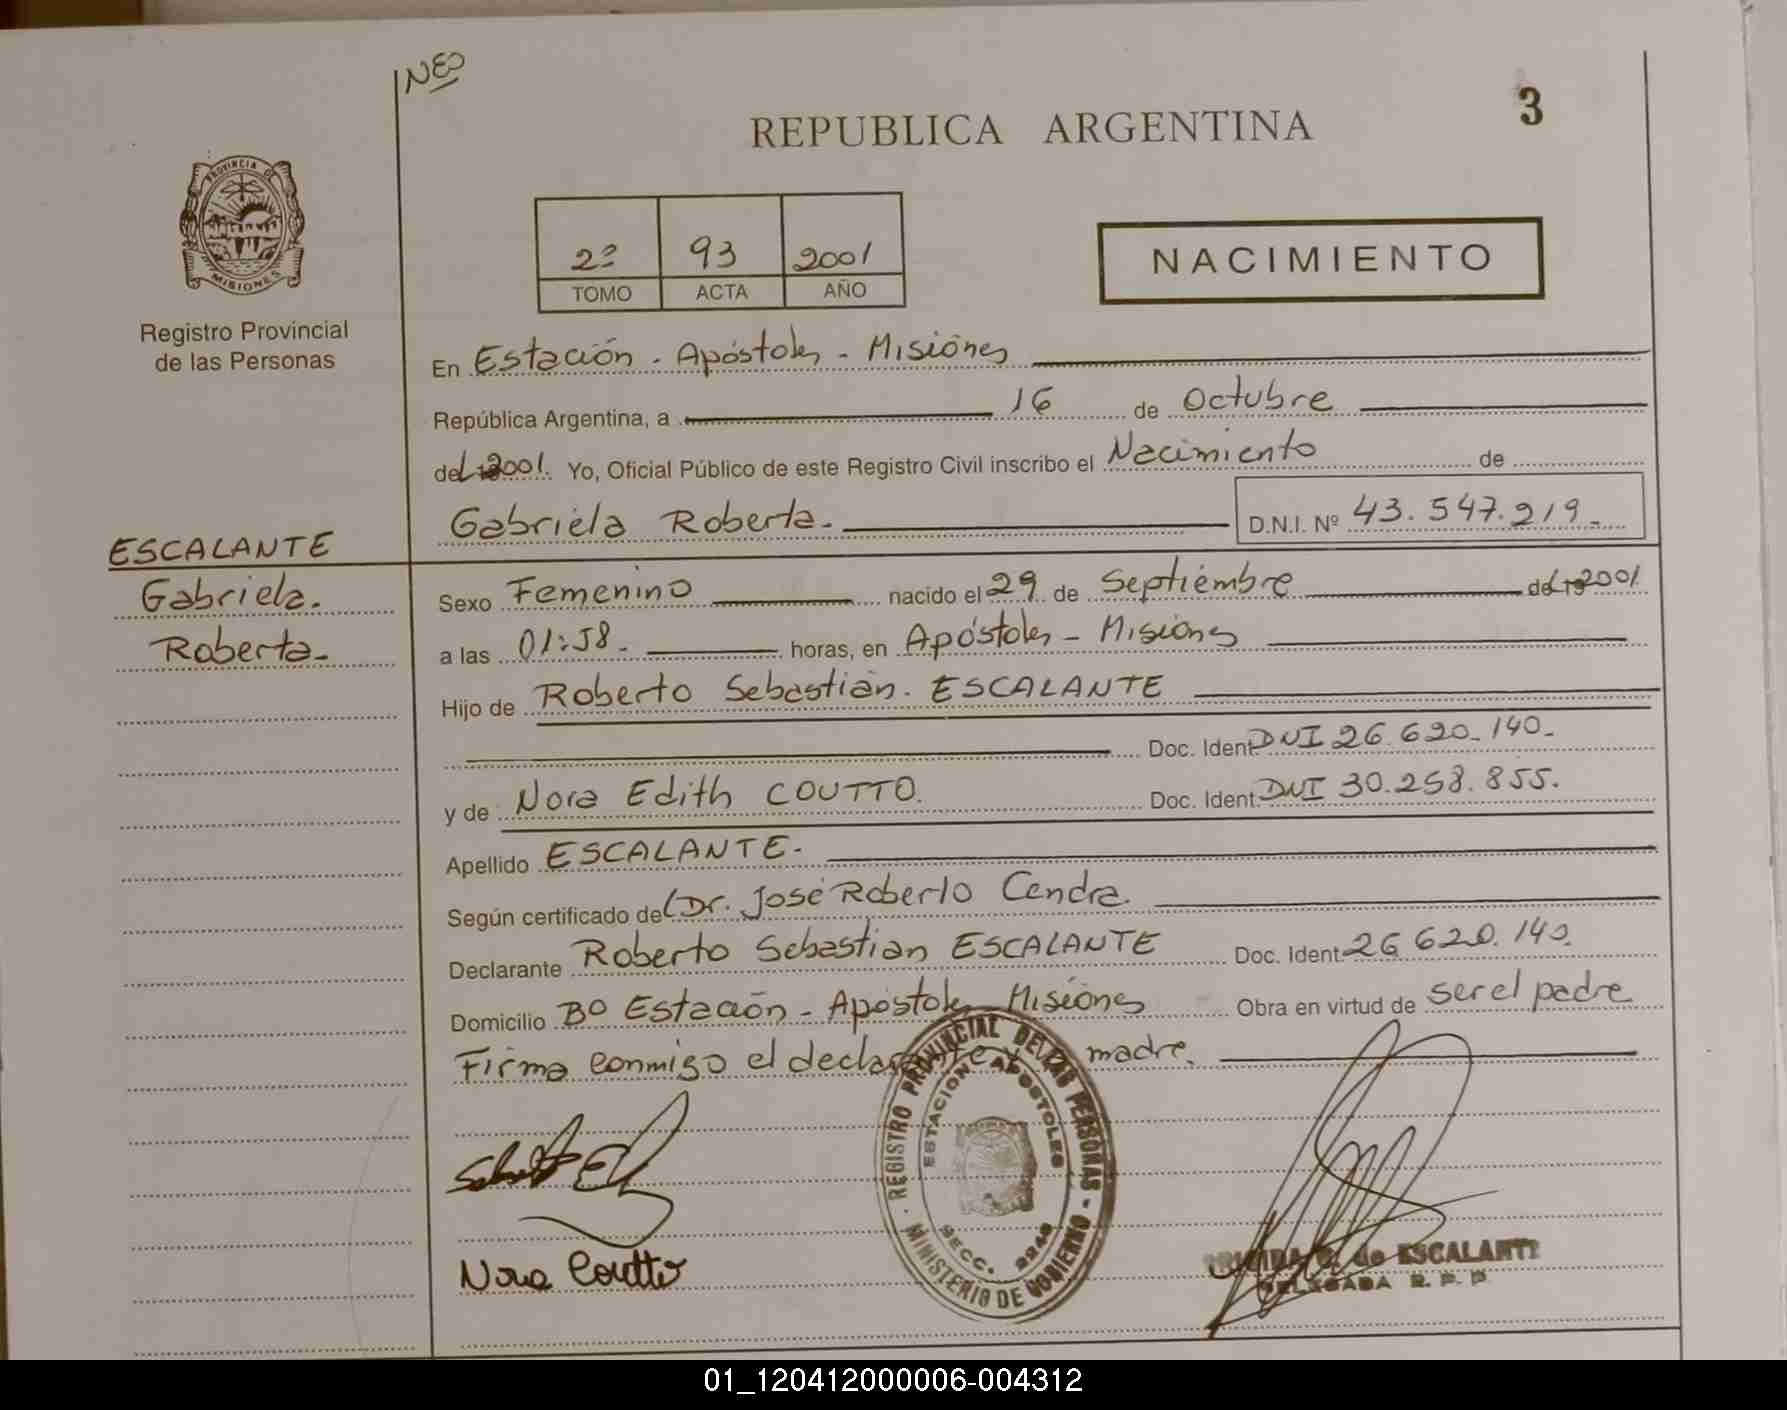 INEO
REPUBLICA ARGENTINA
3
PROVINCIA DE
MISIONES
Registro Provincial
de las Personas
2º 93 2001
TOMO ACTA AÑO
NACIMIENTO
En Estación - Apóstoles - Misiones
República Argentina, a 16 de Octubre
del 2001. Yo, Oficial Público de este Registro Civil inscribo el Nacimiento de
Gabriela Roberta. D.N.I. Nº 43.547.219.-
ESCALANTE
Gabriela.
Roberta-
Sexo Femenino nacido el 29 de Septiembre del 192001.
a las 01:58. horas, en Apóstoles - Misiones
Hijo de Roberto Sebastián. ESCALANTE
Doc. Ident DNI 26.620.140.-
y de Nora Edith COUTTO. Doc. Ident DNI 30.258.855.
Apellido ESCALANTE.
Según certificado del Dr. José Roberto Cendra.
Declarante Roberto Sebastian ESCALANTE Doc. Ident 26 620.140.
Domicilio Bº Estación - Apóstoles Misiones Obra en virtud de ser el padre
Firma conmigo el declarante y madre.
REGISTRO PROVINCIAL DE LAS PERSONAS - MINISTERIO DE GOBIERNO
ESTACION APOSTOLES
SECC.
Nora Coutto
de ESCALANTE
DELEGADA R. P. P
01_120412000006-004312